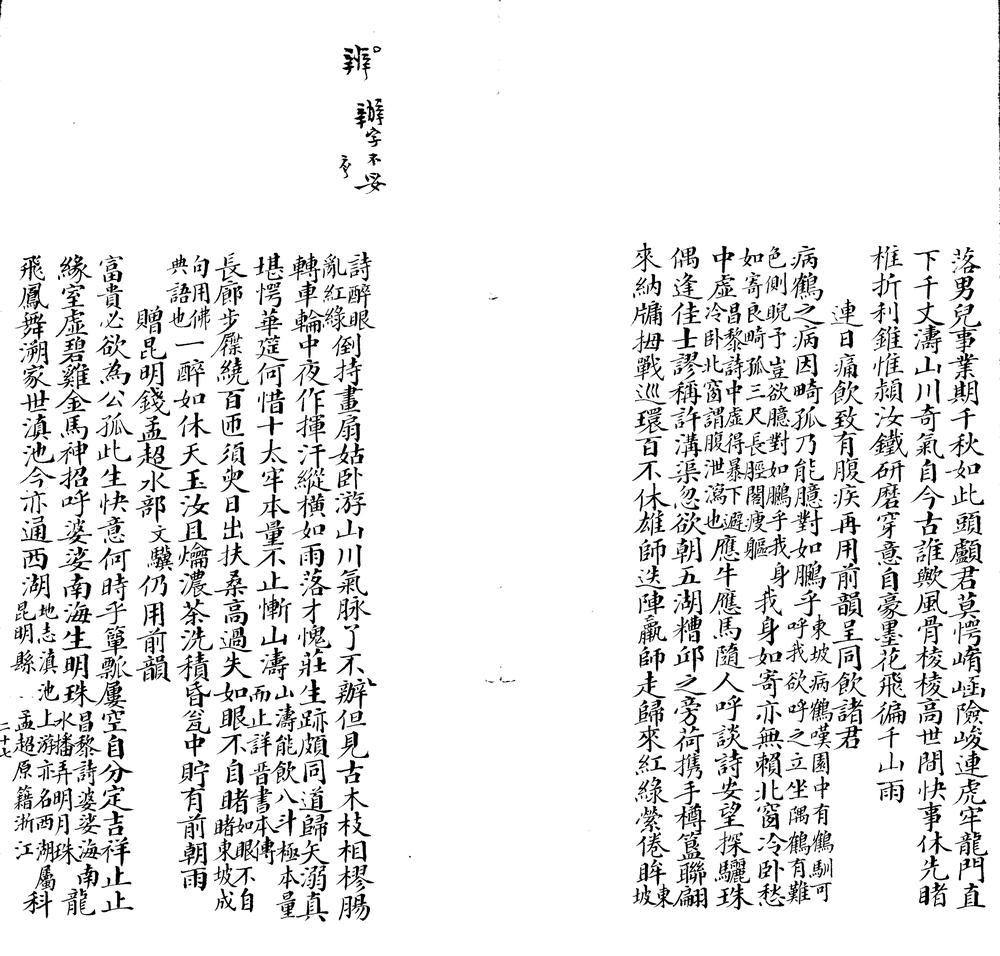 落男兒事業期千秋如此頭顱君莫愕崤崡險峻連虎牢龍門直
下千丈濤山川奇氣自今古誰歟風骨棱棱高世間快事休先睹
椎折利錐惟潁汝鐵研磨穿意自豪墨花飛徧千山雨
連日痛飲致有腹疾再用前韻呈同飲諸君
病鶴之病因畸孤乃能臆對如鵬乎東坡病鶴嘆園中有鶴馴可呼我欲呼之立坐隅鶴有難
色側睨予豈欲臆對如鵬乎我身如寄良畸孤三尺長脛閣瘦軀我身如寄亦無賴北窗冷卧愁
中虛昌黎詩中虛得暴下避冷卧北窗謂腹泄瀉也應牛應馬隨人呼談詩安望探驪珠
偶逢佳士謬稱許溝渠忽欲朝五湖糟邱之旁荷携手樽簋聯翩
來納牗拇戰巡環百不休雄師迭陣羸師走歸來紅綠縈倦眸東坡
詩醉眼亂紅綠倒持畫扇姑卧游山川氣脉了不辦但見古木枝相樛腸
轉車輪中夜作揮汗縱橫如雨落才愧莊生跡頗同道歸矢溺真
堪愕華筵何惜十太牢本量不止慚山濤山濤能飲八斗極本量而止詳晉書本傳
長廊步屧繞百匝須臾日出扶桑高過失如眼不自睹如眼不自睹東坡成
句用佛典語也一醉如休天玉汝且爚濃茶洗積昏瓮中貯有前朝雨
贈昆明錢孟超水部文驥仍用前韻
富貴必欲為公孤此生快意何時乎簞瓢屢空自分定吉祥止止
緣室虛碧雞金馬神招呼婆娑南海生明珠昌黎詩婆娑海水播弄明月珠南龍
飛鳳舞溯家世滇池今亦通西湖地志滇池上游亦名西湖屬昆明縣 孟超原籍浙江科
二十七
辨
辦字不妥